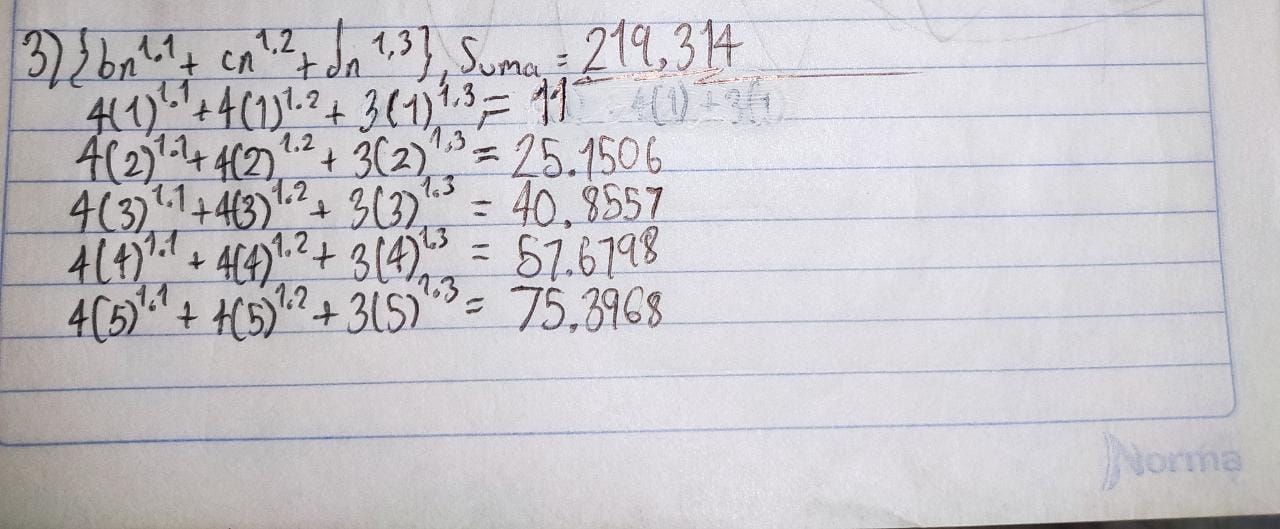 3) {bn^1.1 + cn^1.2 + dn^1,3}, Suma = 219,314
4(1)^1.1 + 4(1)^1.2 + 3(1)^1,3 = 11
4(2)^1.1 + 4(2)^1.2 + 3(2)^1,3 = 25.1506
4(3)^1.1 + 4(3)^1.2 + 3(3)^1.3 = 40,8557
4(4)^1.1 + 4(4)^1.2 + 3(4)^1.3 = 57.6798
4(5)^1.1 + 4(5)^1.2 + 3(5)^1.3 = 75.3968
Norma